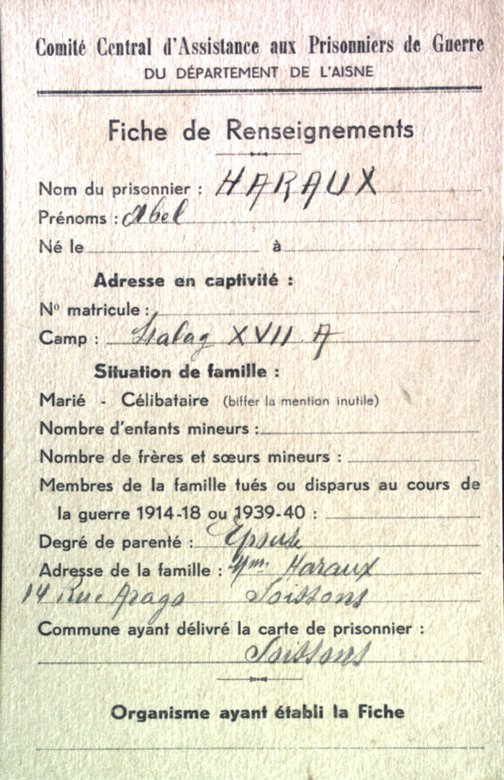 Comité Central d'Assistance aux Prisonniers de Guerre
DU DÉPARTEMENT DE L'AISNE
Fiche de Renseignements
Nom du prisonnier : HARAUX
Prénoms : Abel
Né le à
Adresse en captivité :
No matricule :
Camp : Stalag XVII A
Situation de famille :
Marié - Célibataire (biffer la mention inutile)
Nombre d'enfants mineurs :
Nombre de frères et sœurs mineurs :
Membres de la famille tués ou disparus au cours de
la guerre 1914-18 ou 1939-40 :
Degré de parenté : Epouse
Adresse de la famille : Mme Haraux
14 Rue Arago Soissons
Commune ayant délivré la carte de prisonnier :
Soissons
Organisme ayant établi la Fiche